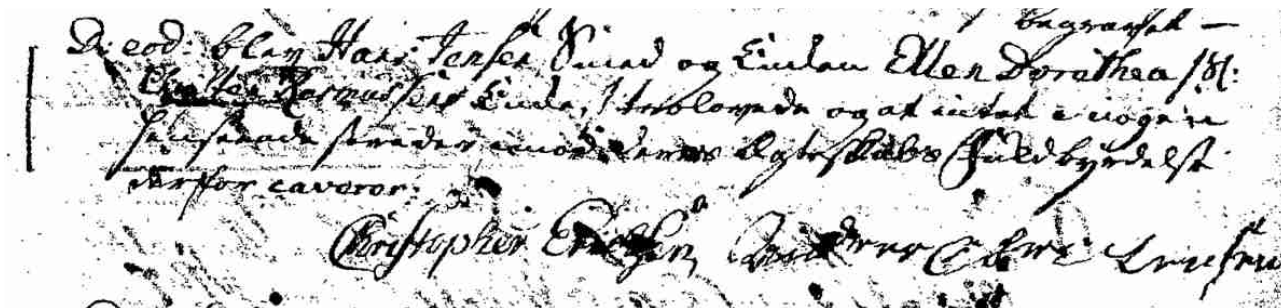 begravet —
D: eod: blev Hans Jensen Smed og Enken Ellen Dorathea /Sl:
Rasmussens Enke,/ trolovede og at intet i nogen
henseende strider imod deres Ægteskabs Fuldbyrdelse
derfor caverer:
Christopher Erichsen Lensen